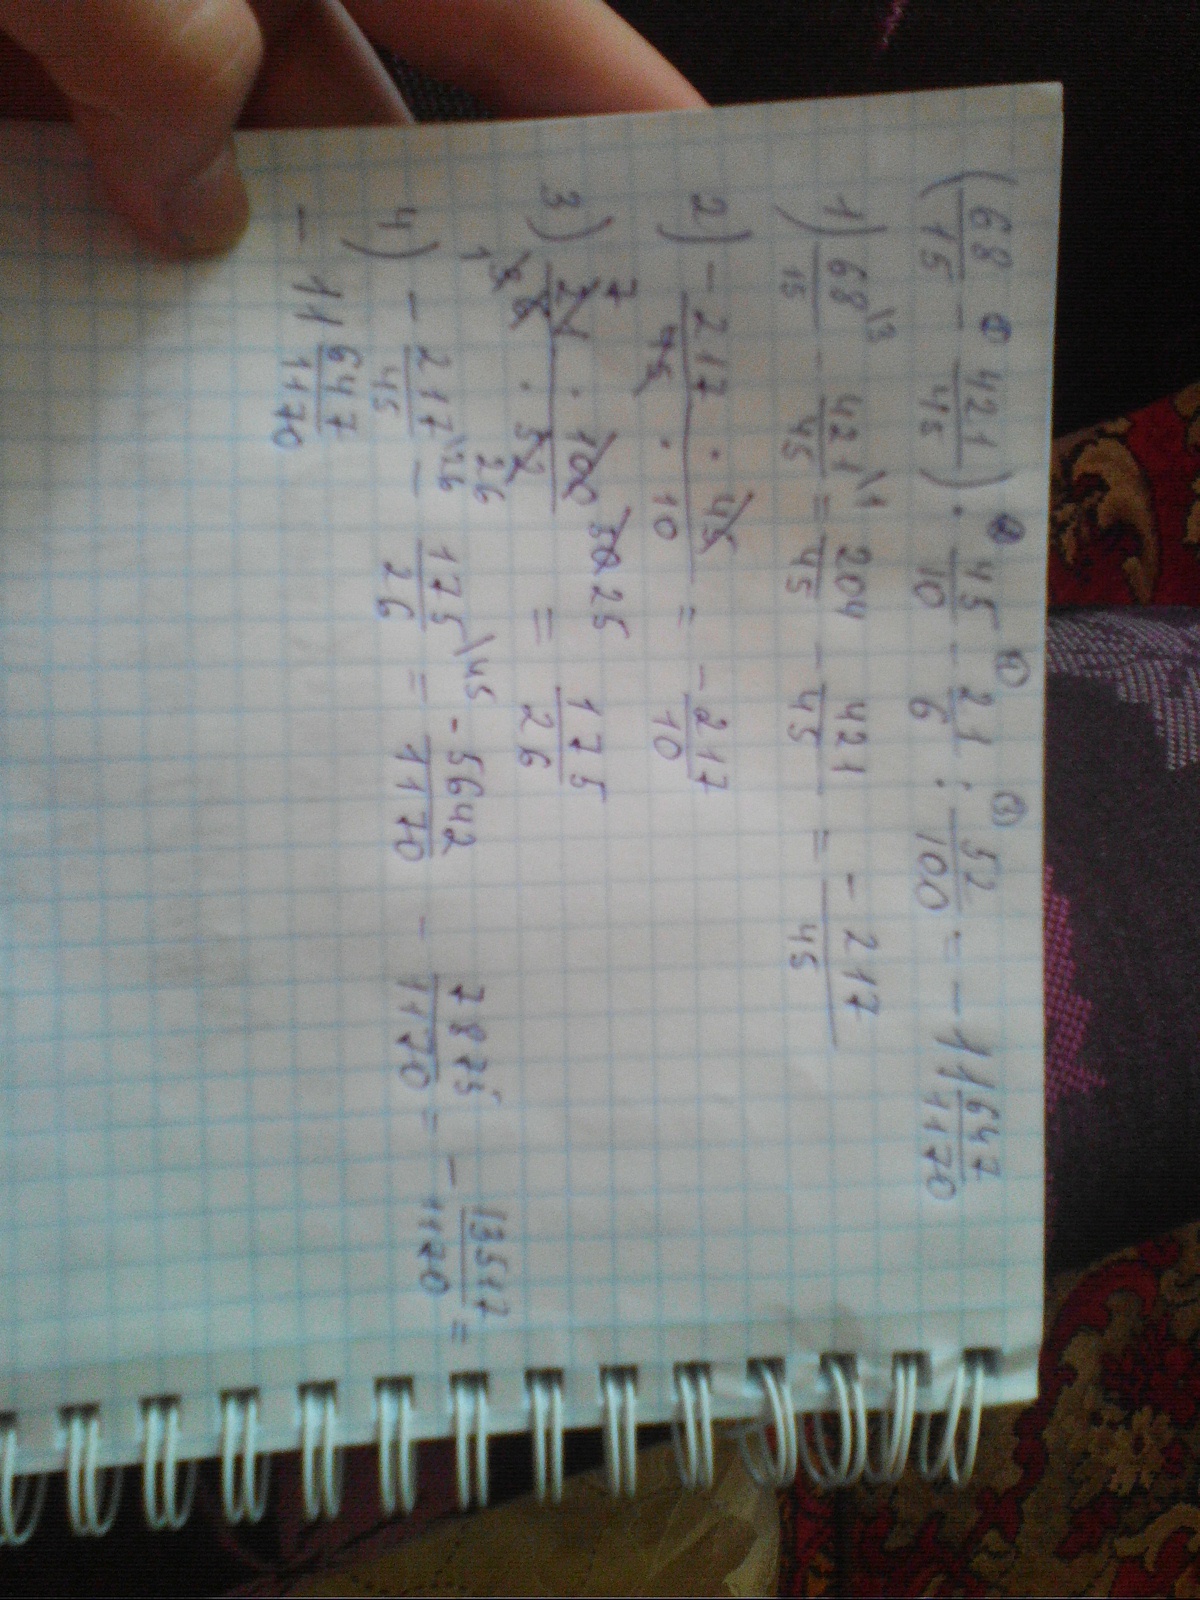 (68/15 - 421/45) · 45/10 - 21/6 : 52/100 = - 11 647/1170
1) 68/15 \3 - 421/45 \1 = 204/45 - 421/45 = - 217/45
2) - 217 · 45 / 45 · 10 = - 217/10
3) 21 · 100 / 6 · 52 = 175/26
7 50 25
1 3 26
4) - 217/45 \26 - 175/26 \45 = - 5642/1170 - 7875/1170 = - 13517/1170 =
- 11 647/1170